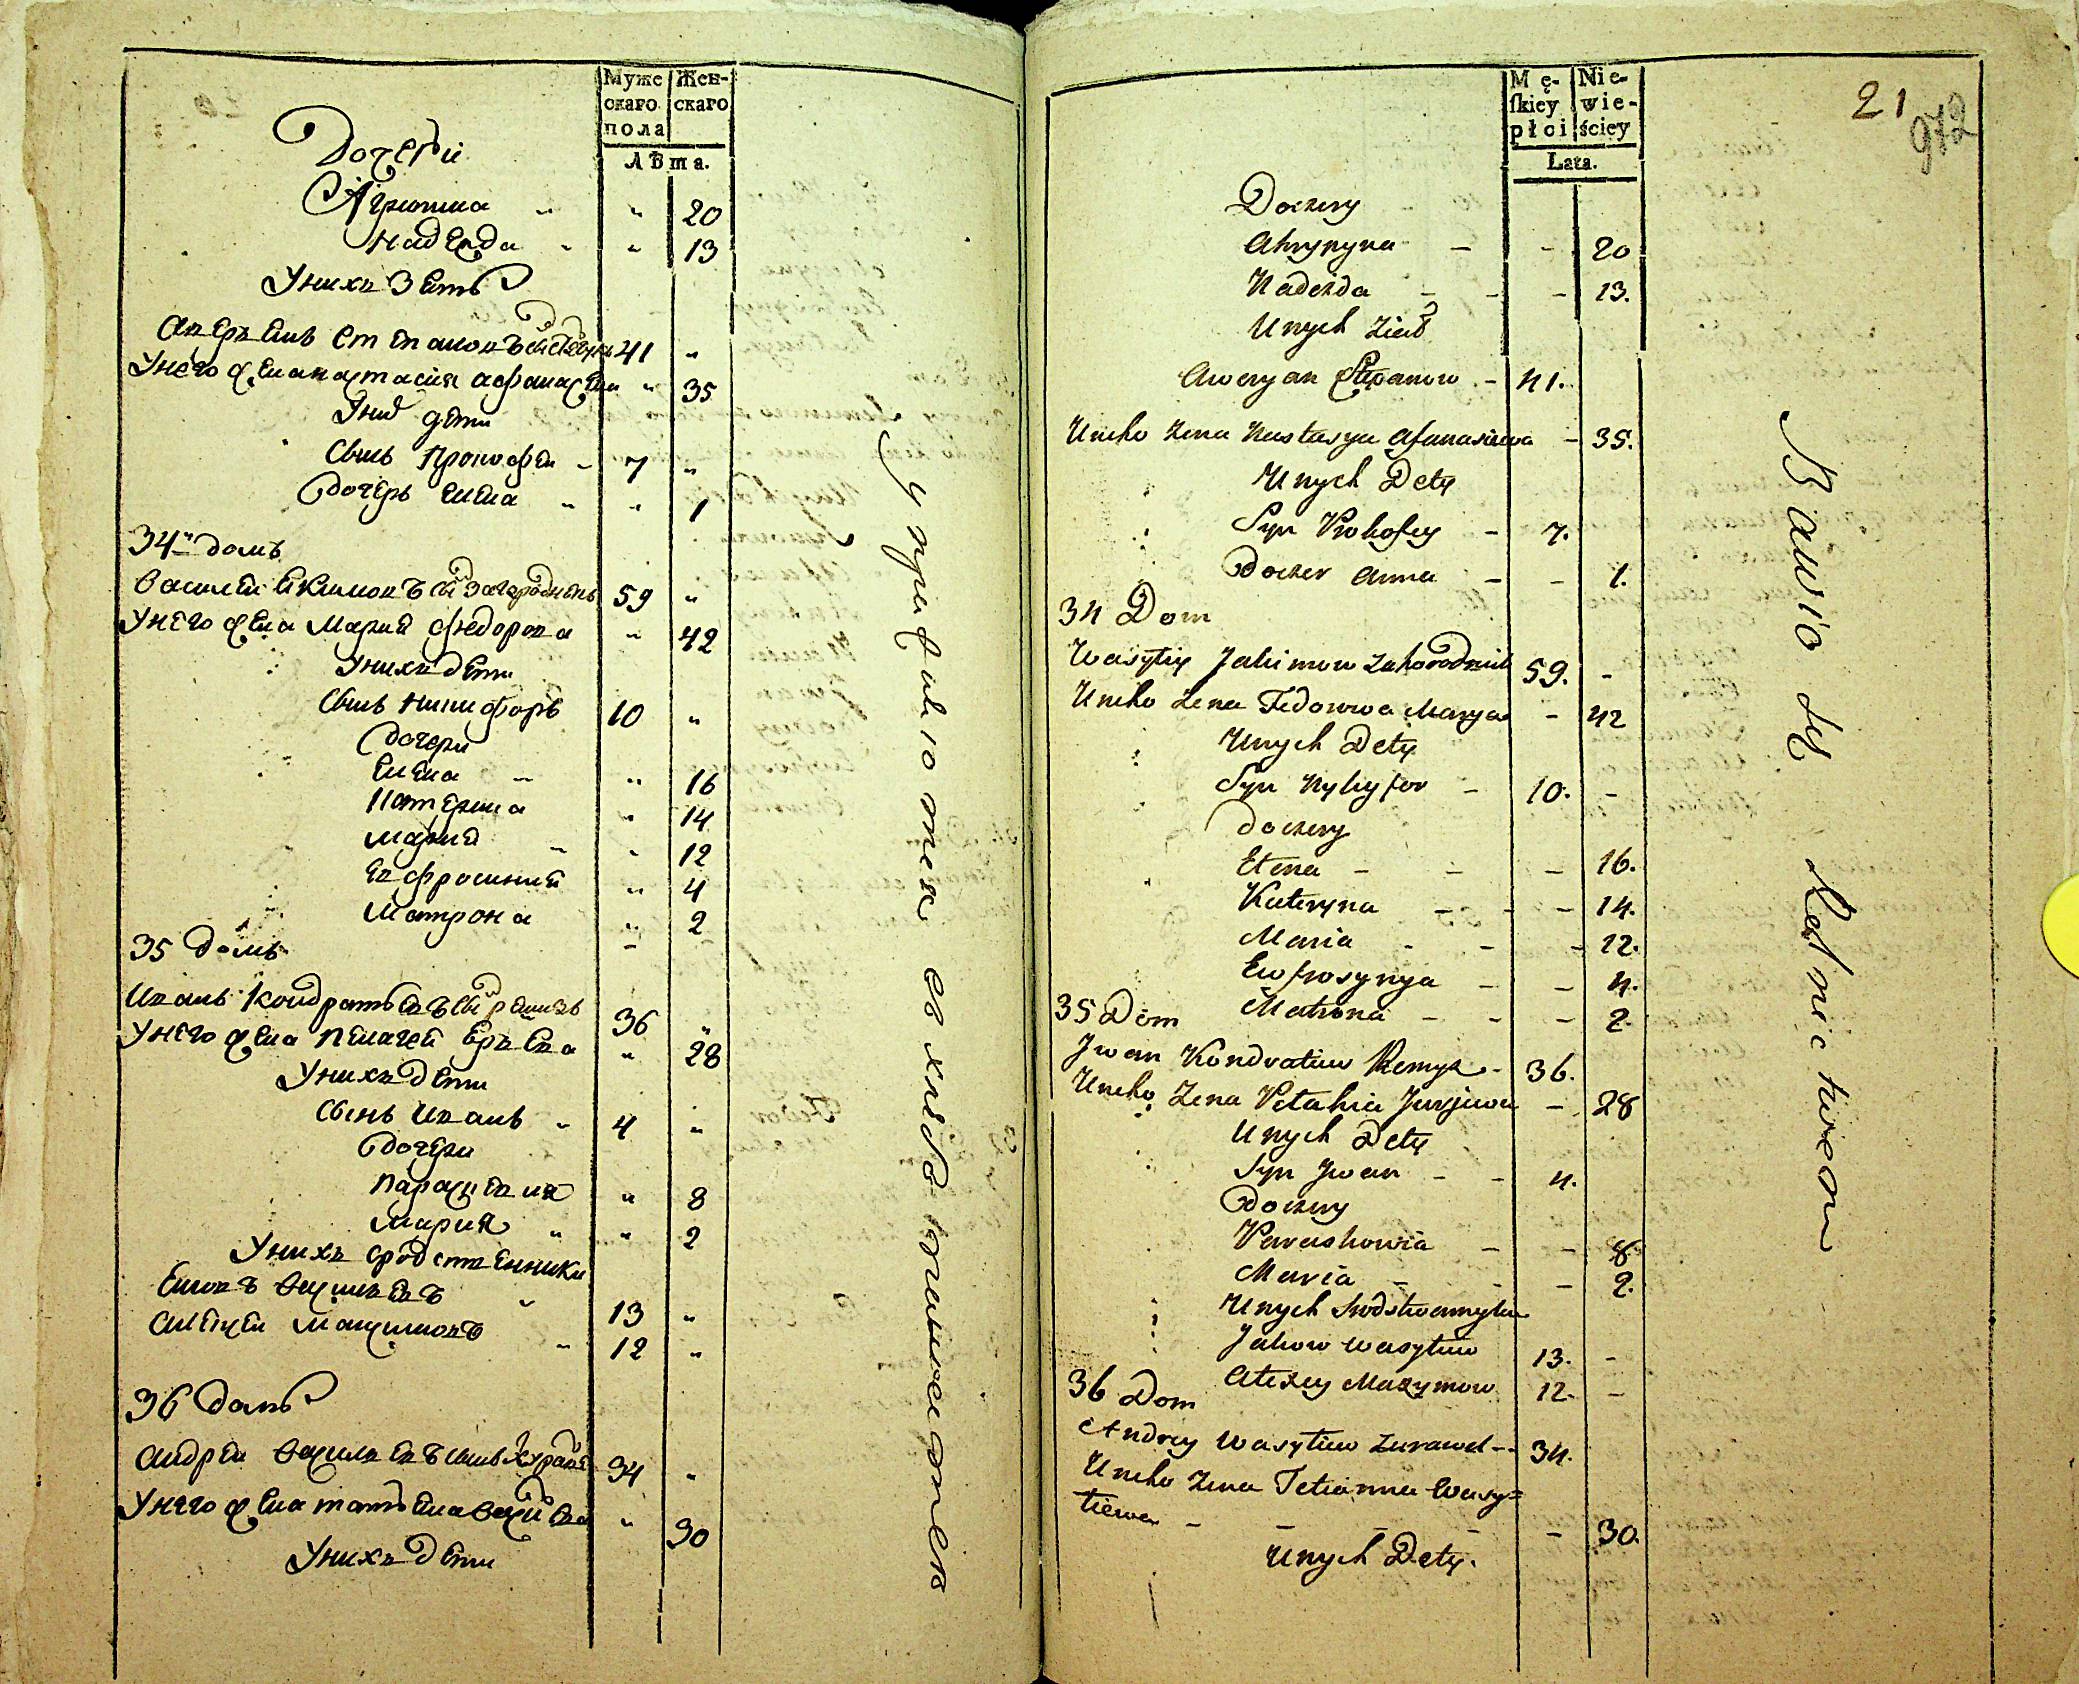 Муже
скаго
пола
Жен-
скаго
Лѣта.
Дочери
Агрипина " " 20
Надежда " " 13
У нихъ Зеть
Аверьянъ Степановъ 41 "
У него жена Настасия Афанасьева " 35
У них дети
Сынъ Прокофей - 7 "
Дочерь Анна " " 1
34й домъ
Василей Якимовъ Загородникъ 59 "
У него жена Мария Федорова " 42
У нихъ дети
Сынъ Никифоръ 10 "
Дочери
Елена " " 16
Катерина " 14
Мария " " 12
Евфросиния " 4
Матрона " 2
35 домъ
Иванъ Кондратьевъ Ремизъ 36 "
У него жена Пелагея Юрьева " 28
У нихъ дети
Сынъ Иванъ " 4 "
Дочери
Парасцевия " 8
Мария " " 2
У нихъ сродственники
Яковъ Васильевъ " 13 "
Алексей Максимовъ " 12 "
36 домъ
Андрей Васильевъ 34 "
У него жена Татьяна " 30
У нихъ дети
управляются въ хлебопашестве
Mę-
skiey
płci
Nie-
wie-
ściey
Lata.
21
972
Doczery
Ahrypyna - - 20
Nadeżda - - - 13.
Unych Ziat
Aweryan Stepanow - 41.
Uneho Żena Nastasya Afanasiewa - 35.
Unych Dety
Syn Prokofey - 7.
Doczer Anna - - 1.
34 Dom
Wasyliy Jakimow Zahorodnik 59. -
Uneho Żena Fedorowa Marya - 42
Unych Dety
Syn Nykyfor - 10. -
doczery
Elena - - - 16.
Kateryna - - - 14.
Maria - - - 12.
Ewfrosynya - - 4.
35 Dom Matrona - - - 2.
Jwan Kondratiew Remyz - 36.
Uneho Żena Pelahia Jurjiewa - 28
Unych Dety
Syn Jwan - - 4.
Doczery
Paraskowia - - 8
Maria - - - 2.
Unych srodstwennyky
Jakow Wasyliew 13. -
36 Dom Alexey Maxymow 12. -
Andrey Wasyliew Żurawel -- 34.
Uneho Żena Tetianna Wasy=
liewa - - - - - 30.
Unych Dety.
Bawio sy Rolnictwem